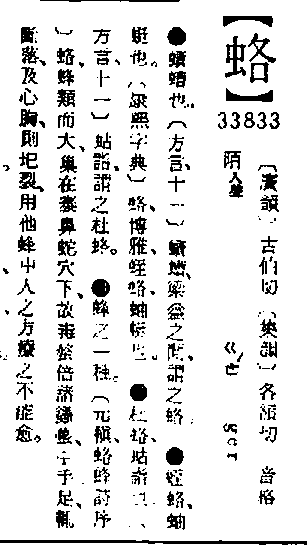 【蛒】
33833
〔廣韻〕古伯切〔集韻〕各頟切 音格
陌入聲 ㄍㄜˊ ger
●蠀螬也。〔方言、十一〕蠀螬、梁益之閒謂之蛒。●蛭蛒、蚰
蜒也。〔康熙字典〕蛒、博雅、蛭蛒、蚰蜒也。●杜蛒、蛄詣也。〔
方言、十一〕蛄詣謂之杜蛒。●蜂之一種。〔元稹、蛒蜂詩序
〕蛒、蜂類而大、巢在褰鼻蛇穴下、故毒螫倍諸蠆、中手足、輒
斷落、及心胸、則圮裂、用他蜂中人之方療之、不能愈。